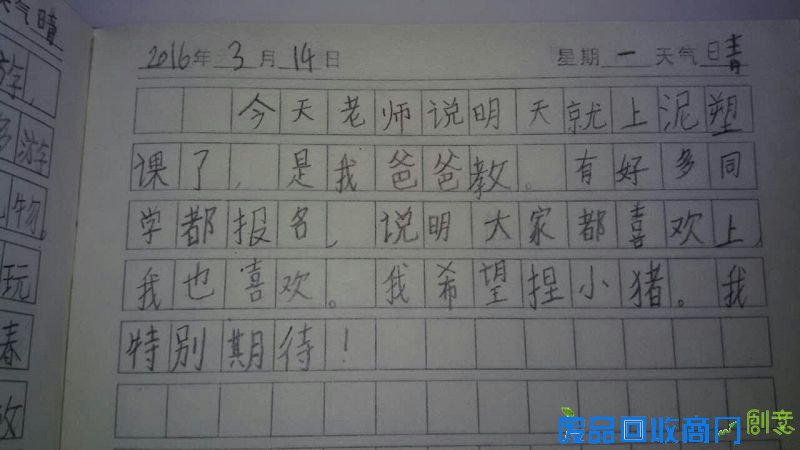 2016年 3月 14日 星期 一 天气 晴
今天老师说明天就上泥塑
课了，是我爸爸教。有好多同
学都报名，说明大家都喜欢上，
我也喜欢。我希望捏小猪。我
特别期待！
天气晴
游字，
多游字
物。
玩
春
废品回收商网
創意